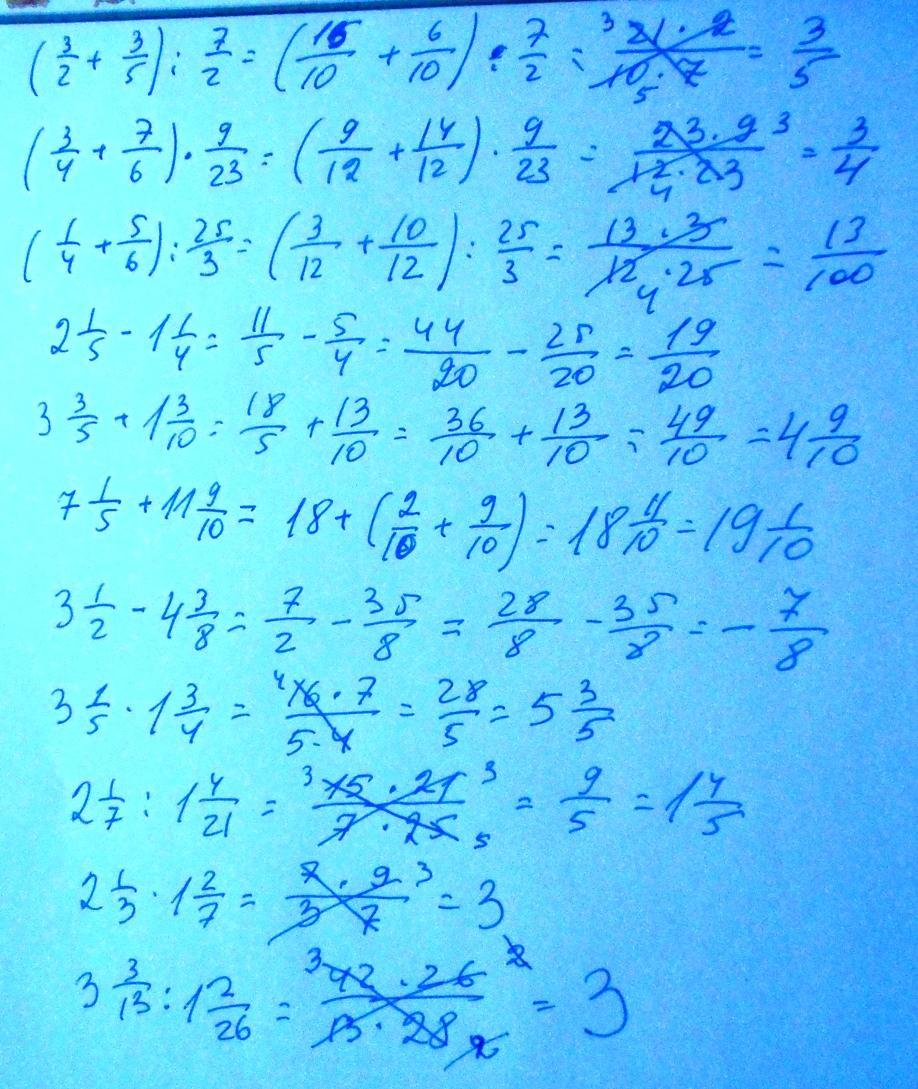 (3/2 + 3/5) : 7/2 = (15/10 + 6/10) : 7/2 = 3 21·2/10·7 5 = 3/5
(3/4 + 7/6) · 9/23 = (9/12 + 14/12) · 9/23 = 23·9 3/12·23 4 = 3/4
(1/4 + 5/6) : 25/3 = (3/12 + 10/12) : 25/3 = 13·3/12 4·25 = 13/100
2 1/5 - 1 1/4 = 11/5 - 5/4 = 44/20 - 25/20 = 19/20
3 3/5 + 1 3/10 = 18/5 + 13/10 = 36/10 + 13/10 = 49/10 = 4 9/10
7 1/5 + 11 9/10 = 18 + (2/10 + 9/10) = 18 11/10 = 19 1/10
3 1/2 - 4 3/8 = 7/2 - 35/8 = 28/8 - 35/8 = - 7/8
3 1/5 · 1 3/4 = 4 16·7/5·4 = 28/5 = 5 3/5
2 1/7 : 1 4/21 = 3 15·21 3/7·25 5 = 9/5 = 1 4/5
2 1/3 · 1 2/7 = 7·9 3/3·7 = 3
3 3/13 : 1 2/26 = 3 42·26 2/13·28 2 = 3